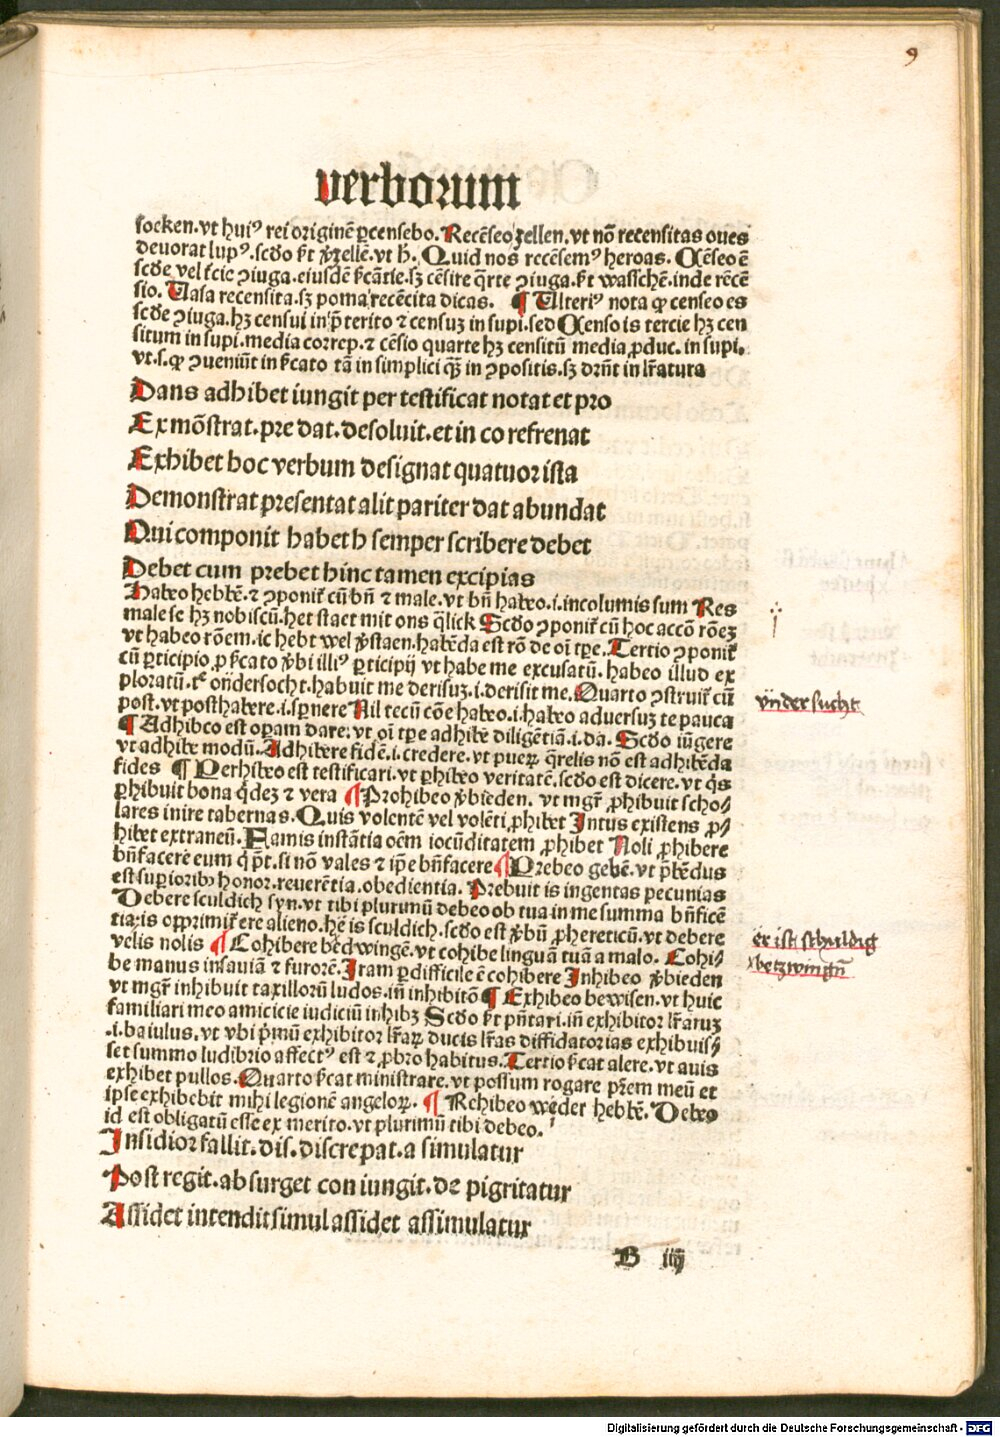 9
verborum
soeken.vt huiꝰ rei originē ꝑcensebo.Recēseo zellen.vt nō recensitas oues
deuorat lupꝰ.scdo ẜt v̓zellē.vt h̄.Quid nos recēsemꝰ heroas. Ↄcēseo ē
scde vel t̓cie ↄiuga.eiusdē ẜcātie.sꝫ cēsire q̄rte ↄiuga.ẜt wasschē.inde rēcē
sio.Uasa recensita.sꝫ poma recēcita dicas. ¶ Ulteriꝰ nota ꝙ censeo es
scde ↄiuga.hꝫ censui in p̄terito ⁊ censuꝫ in supi.sed Ↄcenso is tercie hꝫ cen
situm in supi.media correp.⁊ cēsio quarte hꝫ censitū media ꝓduc.in supi.
vt.s.ꝙ ↄueniūt in ẜcato tā in simplici qꝫ̄ in ↄpositis.sꝫ dr̄nt in lr̄atura
Dans adhibet iungit per testificat notat et pro
Ex mōstrat.pre dat.de soluit.et in co refrenat
Exhibet hoc verbum designat quatuor ista
Demonstrat presentat alit pariter dat abundat
Qui componit habet h semper scribere debet
Debet cum prebet hinc tamen excipias
Habeo hebbē.⁊ ↄponit̓ cū bn̄ ⁊ male.vt bn̄ habeo.i.incolumis sum Res
male se hꝫ nobiscū.het staet mit ons q̄lick Scdo ↄponit̓ cū hoc accō rōeꝫ
vt habeo rōem.ic hebt wel v̓staen.habēda est rō de oī tꝑe.Tertio ↄponit̓
cū ꝑticipio ꝓ ẜcato v̓bi illiꝰ ꝑticipij vt habe me excusatū.habeo illud ex
ploratū.t̓ ondersocht.habuit me derisuꝫ.i.derisit me.Quarto ↄstruit̓ cū
post.vt posthabere.i.spernere Nil tecū cōe habeo.i.habeo aduersuꝫ te pauca
¶ Adhibeo est oꝑam dare.vt oī tꝑe adhibe diligētiā.i.da.Scdo iūgere
vt adhibe modū.Adhibere fidē.i.credere.vt pueꝝ q̄relis nō est adhibēda
fides ¶ Perhibeo est testificari.vt ꝑhibeo veritatē.scdo est dicere.vt q̄s
ꝑhibuit bona q̄deꝫ ⁊ vera ¶ Prohibeo v̓bieden. vt mgr̄ ꝓhibuit scho/
lares inire tabernas.Quis volentē vel volēti ꝓhibet Intus existens ꝓ/
hibet extraneū.Famis instātia oēm iocūditatem ꝓhibet Noli ꝓhibere
bn̄facere eum q̄ p̄t.si nō vales ⁊ ip̄e bn̄facere ¶ Prebeo gebē.vt p̄bēdus
est supioribꝰ honor.reuerētia.obedientia. Prebuit is ingentas pecunias
Debere sculdich syn.vt tibi plurimū debeo ob tua in me summa bn̄ficē
tia:is opprimit̓ ere alieno.hē is sculdich.scdo est v̓bū ꝓhereticū.vt debere
velis nolis ¶ Cohibere bēdwingē.vt cohibe linguā tuā a malo. Cohi/
be manus insauiā ⁊ furorē.Iram ꝑdifficile ē cohibere Inhibeo v̓bieden
vt mgr̄ inhibuit taxillorū ludos.iñ inhibitō ¶ Exhibeo bewisen.vt huic
familiari meo amicicie iudiciū inhibꝫ Scdo ẜt pn̄tari.iñ exhibitor lr̄aruꝫ
.i.baiulus.vt vbi p̄mū exhibitor lr̄aꝝ ducis lr̄as diffidatorias exhibuis/
set summo ludibrio affectꝰ est ⁊ ꝓbro habitus.Tertio ẜcat alere.vt auis
exhibet pullos.Quarto ẜcat ministrare.vt possum rogare pr̄em meū et
ipse exhibebit mihi legionē angeloꝝ. ¶ Rehibeo weder hebbē. Debeo
id est obligatū esse ex merito.vt plurimū tibi debeo.
Insidior fallit.dis.discrepat.a simulatur
Post regit.ab surget con iungit.de pigritatur
Assidet intendit simul assidet assimulatur
B iiij
vndersucht
er ist schuldig
betzwingn̄
Digitalisierung gefördert durch die Deutsche Forschungsgemeinschaft - DFG